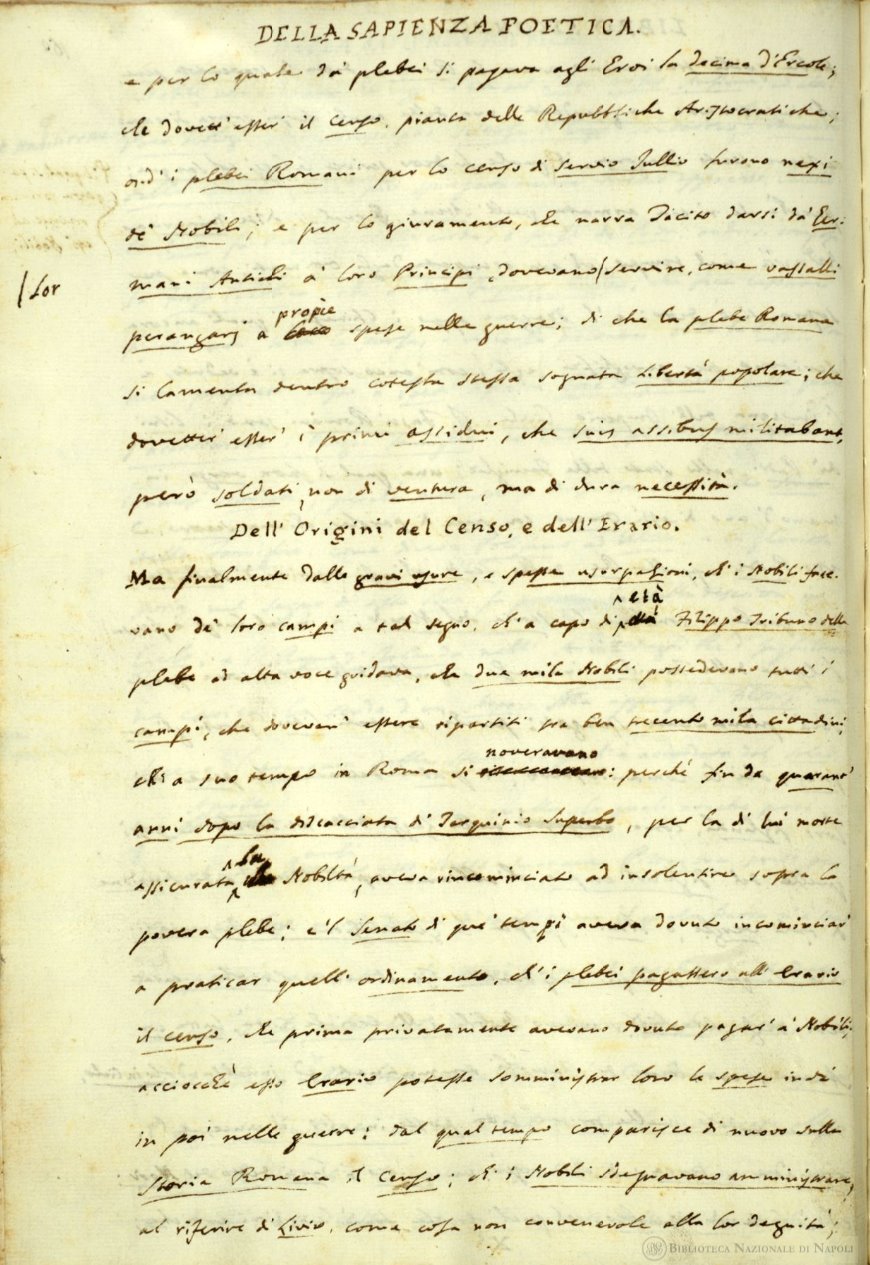 DELLA SAPIENZA POETICA.
e per lo quale da' plebei si pagava agli Eroi la decima d'Ercole;
che dovett' esser' il censo, pianta delle Repubbliche Aristocratiche;
ond' i plebei Romani per lo censo di Servio Tullio furono nexi
de' Nobili; e per lo giuramento, che narra Tacito darsi da' Ger-
mani Antichi a' loro Principi, dovevano/servire, come vassalli
/Lor
perangarj a propie spese nelle guerre; di che la plebe Romana
si lamenta dentro cotesta stessa sognata Libertà popolare; che
dovetter' esser' i primi assidui, che suis assibus militabant,
però soldati, non di ventura, ma di dura necessità.
Dell' Origini del Censo, e dell' Erario.
Ma finalmente dalle gravi usure, e spesse usurpazioni, ch' i Nobili face-
vano de' loro campi a tal segno, ch' a capo di età Filippo Tribuno della
plebe ad alta voce gridava, che due mila Nobili possedevano tutti i
campi, che dovevan' essere ripartiti tra ben trecento mila cittadini,
ch' a suo tempo in Roma si noveravano: perchè fin da quarant'
anni dopo la discacciata di Tarquinio Superbo, per la di lui morte
assicurata la Nobiltà, aveva rincominciato ad insolentire sopra la
povera plebe; e 'l Senato di que' tempi aveva dovuto incominciar'
a praticar quell' ordinamento, ch' i plebei pagassero all' Erario
il censo, che prima privatamente avevano dovuto pagar' a' Nobili;
acciocchè esso Erario potesse somministrar loro le spese indi
in poi nelle guerre: dal qual tempo comparisce di nuovo sulla
Storia Romana il Censo; ch' i Nobili sdegnavano amministrare,
al riferire di Livio, come cosa non convenevole alla lor degnità;
BIBLIOTECA NAZIONALE DI NAPOLI